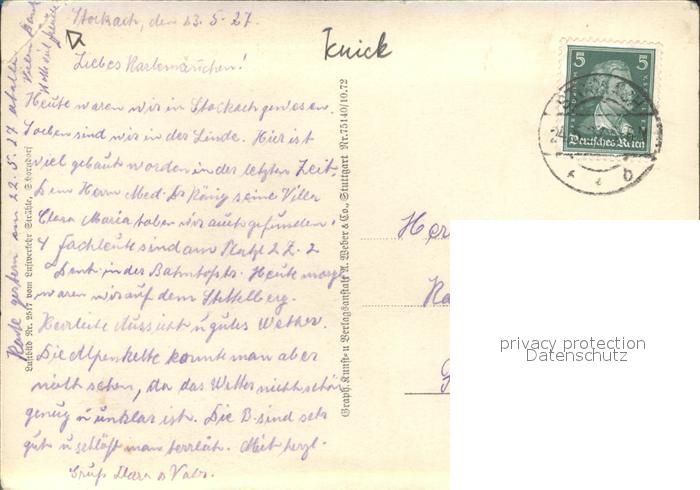 Stockach, den 23.5.27.
Liebes Karlemännchen!
Heute waren wir in Stockach gewesen.
Soeben sind wir in der Linde. Hier ist
viel gebaut worden in der letzten Zeit.
Dem Herrn Med. Dr König seine Villa
Clara Maria haben wir auch gefunden.
4 Fachleute sind am Platz 2 Z. 2
Dent. in der Bahnhofstr. Heute morg
waren wir auf dem
Herrliche Aussicht u gutes Wetter.
Die Alpenkette konnte man aber
nicht sehen, da das Wetter nicht schön
genug u unklar ist. Die B. sind sehr
gut u schläft man herrlich. Mit herzl.
Gruß u Vater.
Karte gestern am 22.5.27 erhalten
Vielen Dank
Luftbild Nr. 2517 vom Luftverkehr Strähle, Schorndorf
Graph. Kunst- u Verlagsanstalt A. Weber & Co., Stuttgart Nr. 75140/10.72
Knick
5 5
Deutsches Reich
STOCKACH
b
Her
privacy protection
Datenschutz